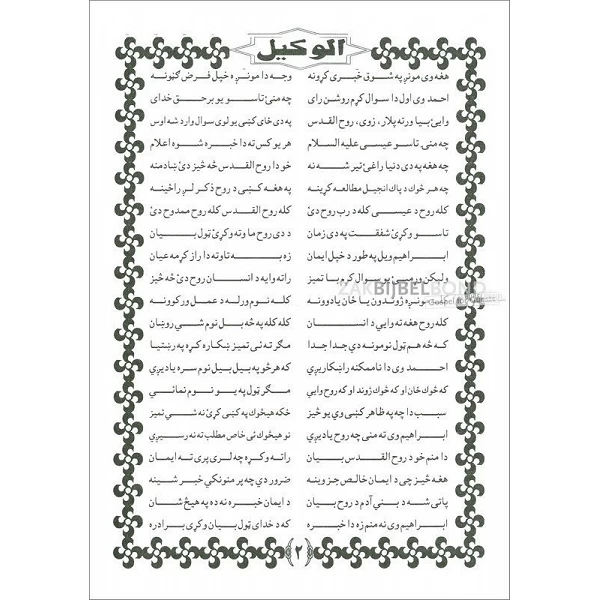 الوکیل
هغه وی مونږ په شوق خبری کړونه وجه دا مونږه خپل فرض ګڼونه
احمد وی اول دا سوال کړم روشن رای چه منئ تاسو یو برحق خدای
وایئ بیا ورته پلار، زوی، روح القدس په دی ځای کښی یو لوی سوال وارد شه اوس
چه منی تاسو عیسی علیه السلام هر یو کس ته دا خبره شوه اعلام
چه هغه په دی دنیا راغی تیر شه نه خو دا روح القدس څه څیز دئ ښاد منه
چه هر څوک د پاک انجیل مطالعه کړینه په هغه کښی د روح ذکر لږ راځینه
کله روح د عیسی کله د رب روح دئ کله روح القدس کله روح ممدوح دئ
تاسو وکړئ شفقت په دی زمان د دی روح ما وته وکړئ ټول بیان
ابراهیم ویل په طور د خپل ایمان زه به تاوته دا راز کړمه عیان
ولیکن ورمبئ یو سوال کرم با تمیز راته وایه د انسان روح دئ څه څیز
ژوندون یا ځان یادوونه کله نوم ورله د عمل ورکوونه
کله روح هغه ته وایی د انسان کله کله په څه بل نوم شی روښان
که څه هم ټول نومونه دی جدا جدا مګر ته ئی تمیز ښکاره کړه په رښتیا
احمد وی دا ناممکنه راښکاریږی که هر څو په بیل بیل نوم سره یادیږی
که څوک ځان او که څوک ژوند او که روح وایی مګر ټول په یو نوم نمائی
سبب دا چه په ظاهر کښی وی یو څیز ځکه هیڅوک په کښی کړئ نه شی تمیز
ابراهیم وی ته منی چه روح یادیږی نو هیڅوک ئی خاص مطلب ته نه رسیږی
دا منم خو د روح القدس بیان راته وکړه چه لری پری ته ایمان
هغه څیز چی د ایمان خالص جز وینه ضرور دی چه پر متونکی خبر شینه
پاتی شه د بنی آدم د روح بیان د ایمان خبره نه ده په هیڅ شان
ابراهیم وی نه منم زه دا خبره که د خدای ټول بیان وکړی برادره
۲
ZAKBIJBELBOND